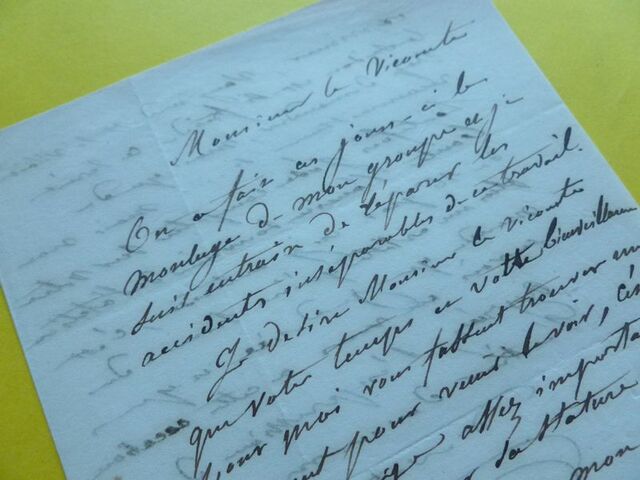 Monsieur le Vicomte
On a fait ces jours-ci le
moulage de mon groupe et je
suis entrain de réparer les
accidents inséparables de ce travail.
Je desire Monsieur le Vicomte
que votre temps et votre bienveillance
pour moi vous fassent trouver un
pour venir le voir, c'es
assez importa
sa stature
mon